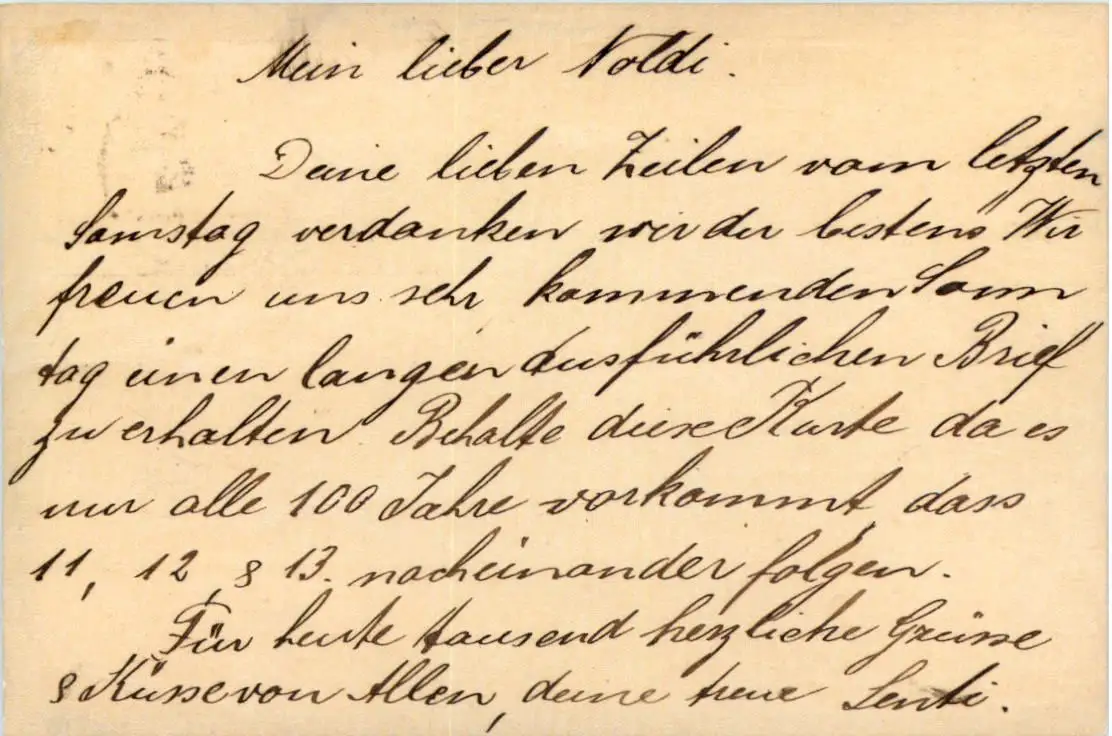 Mein lieber Noldi.
Deine lieben Zeilen vom letzten
Samstag verdanken wir dir bestens Wir
freuen uns sehr, kommenden Sonn
tag einen langen ausführlichen Brief
zu erhalten. Behalte diese Karte da es
nur alle 100 Jahre vorkommt, dass
11, 12, & 13. nacheinander folgen.
Für heute tausend herzliche Grüsse
& Küsse von Allen, deine treue Senti.